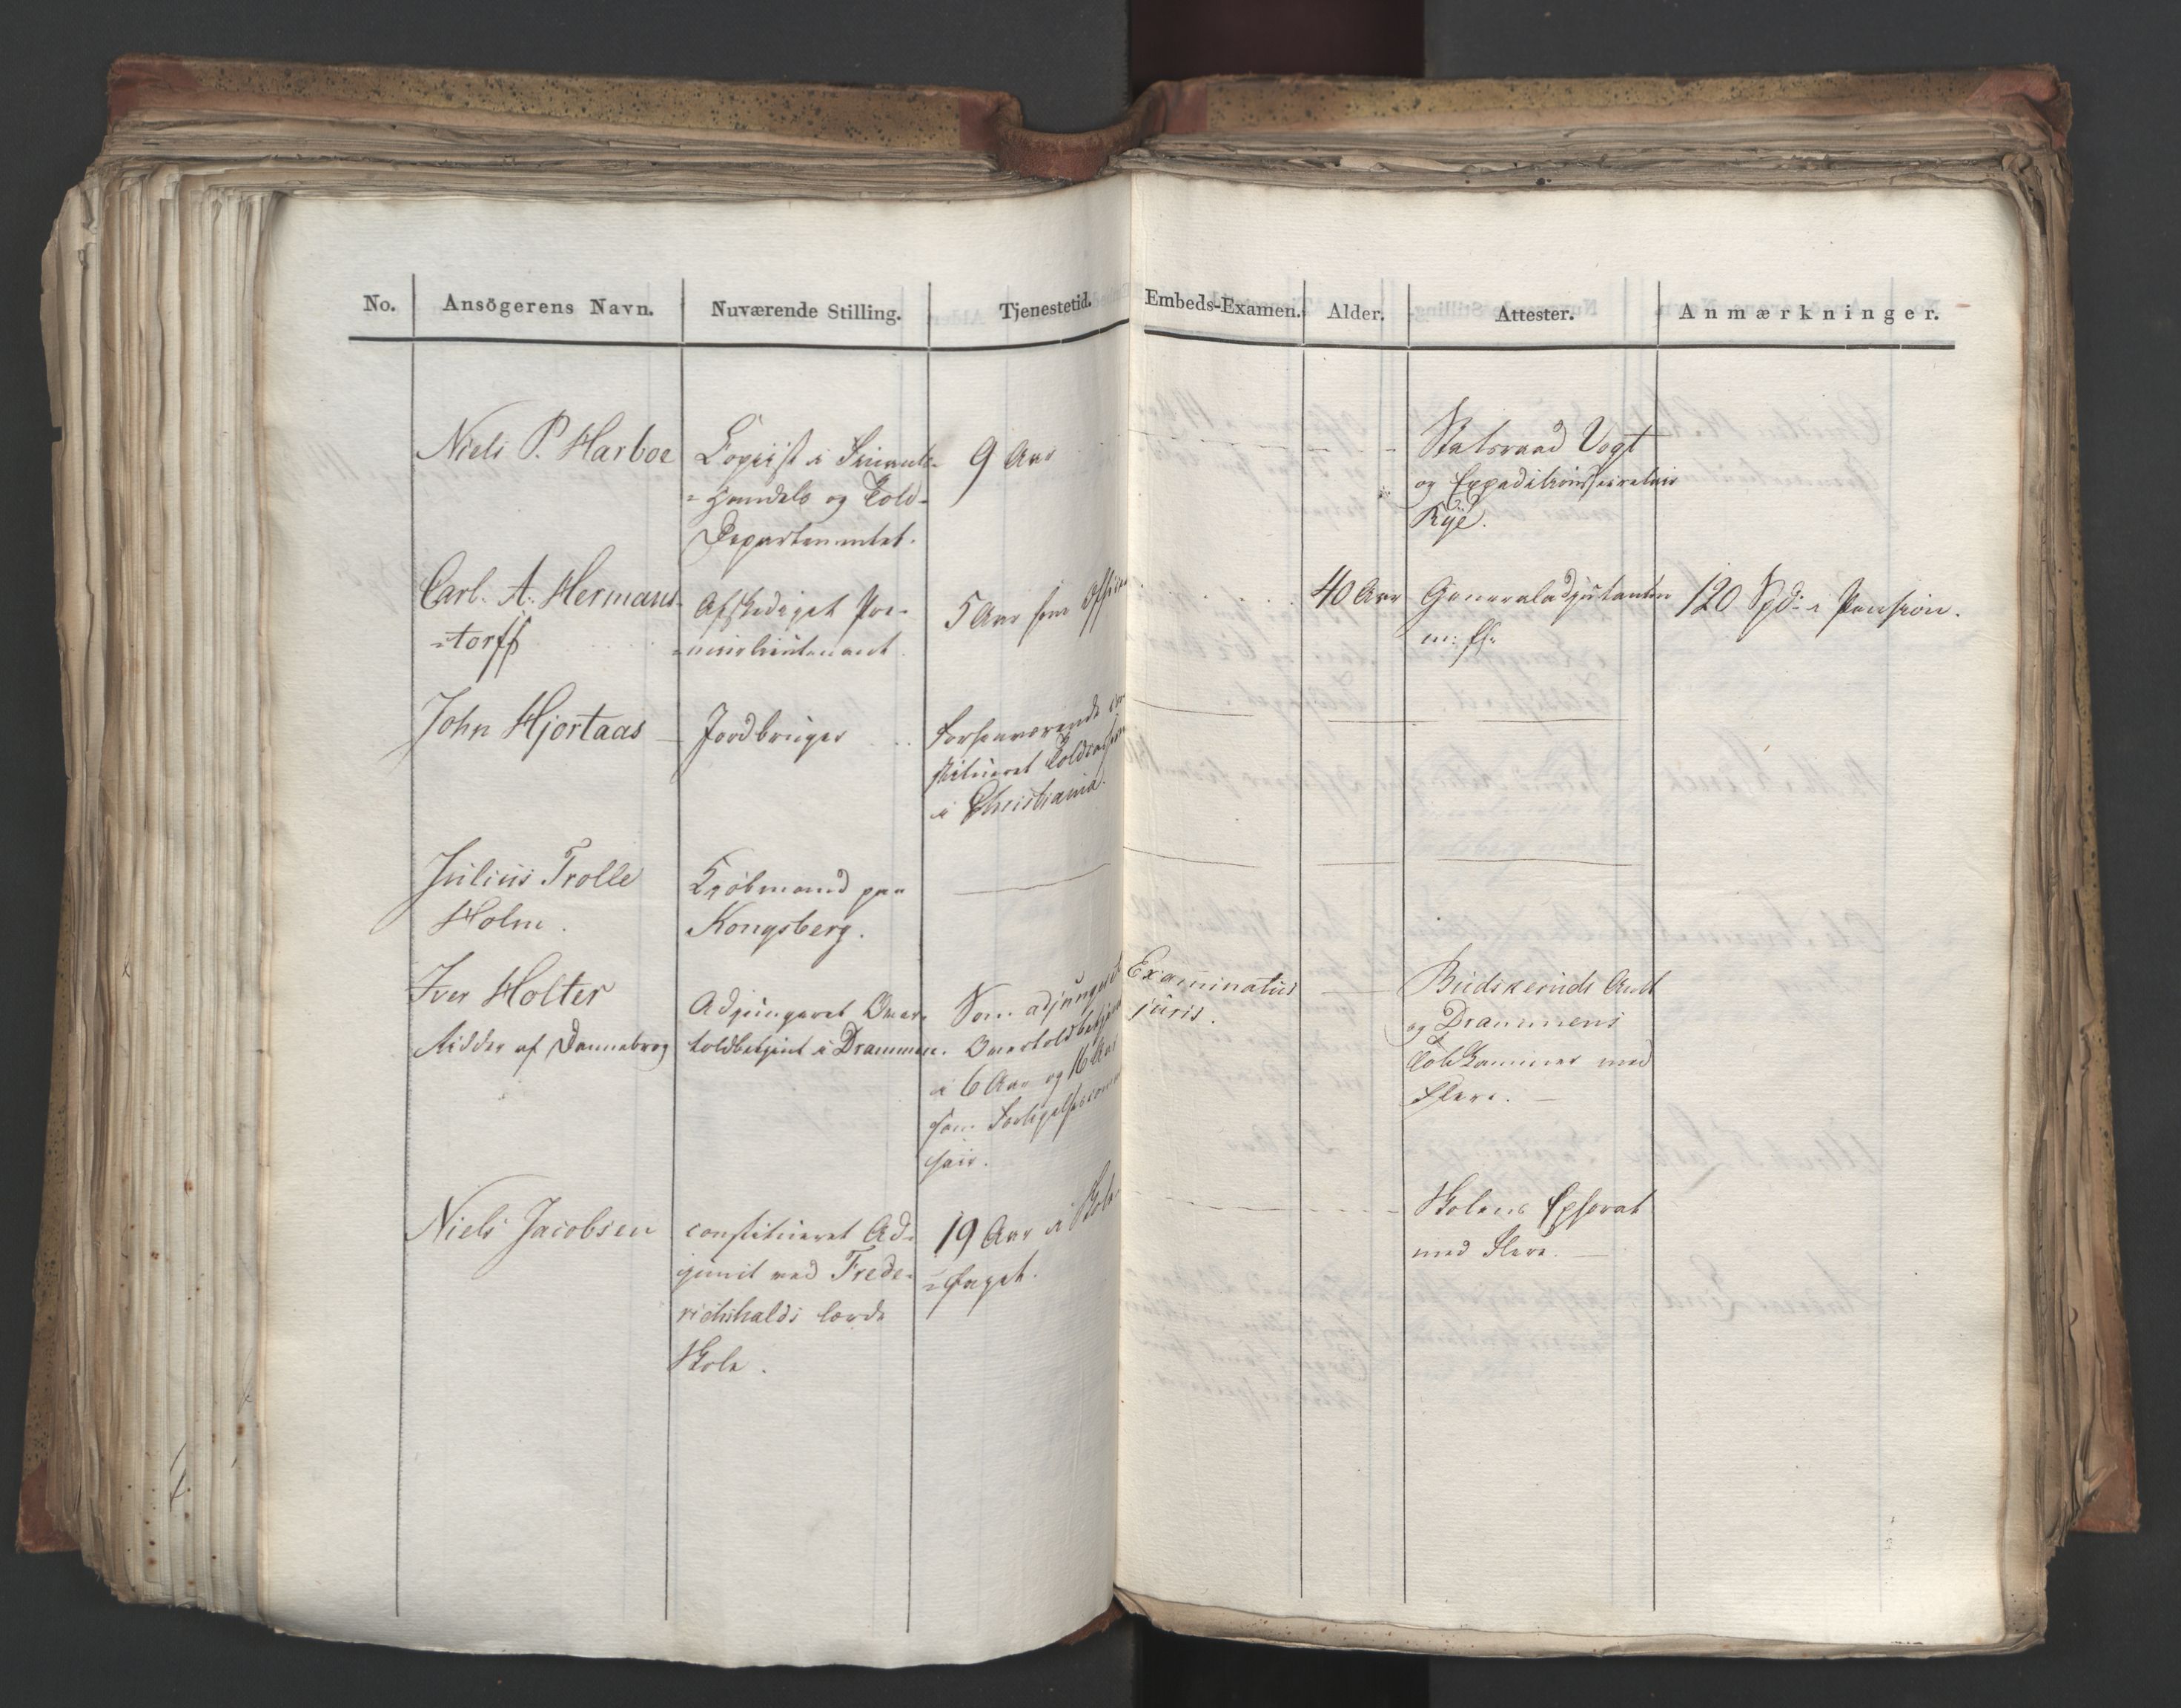 No. Ansögerens Navn. Nuværende Stilling. Tjenestetid. Embeds-Examen. Alder. Attester. Anmærkninger.
Niels P. Harboe
Copiist i Finants-
=Handels og Told-
Departementet.
9 Aar
Statsraad Vogt
og Expeditionssecretair
Rye.
Carl. A. Herman-
=torff
Afskediget Pre-
=mierlieutenant
5 Aar som Officier
40 Aar
Generaladjutanten
m: fl:
120 Spd: i Pension.
John Hjortaas
Jordbruger
Forhenværende con-
stitueret Toldcasserer
i Christiania.
Julius Trolle
Holm.
Kjöbmand paa
Kongsberg.
Iver Holter
Ridder af Dannebrog
Adjungeret Over-
toldbetjent i Drammen.
Som adjungeret
Overtoldbetjent
i 6 Aar og 16 Aar
som Forligelsescommis-
sair.
Examinatus
juris.
Buskeruds Amt
og Drammens
Toldkammer med
Flere.
Niels Jacobsen
constitueret Ad-
junct ved Frede-
richshalds lærde
Skole.
19 Aar i Skole-
=faget.
Skolens Ephorat
med Flere.